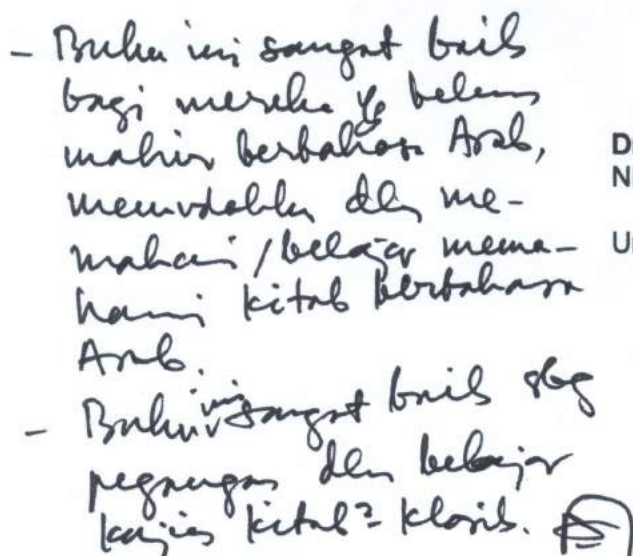 - Buku ini sangat baik
bagi mereka yg belum
mahir berbahasa Arab,
memudahkan dlm me-
mahami / belajar mema-
hami kitab berbahasa
Arab.
- Buku ini sangat baik sbg
pegangan dlm belajar
kajian kitab2 klasik.
D
N
U